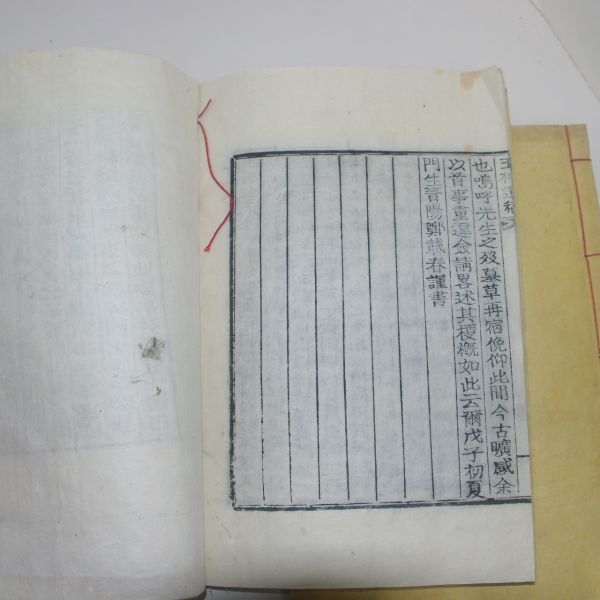 也嗚呼先生之歿墓草再宿俛仰此間今古曠感余
以首事重違僉請畧述其梗槪如此云爾戊子初夏
門生晉陽鄭 春謹書